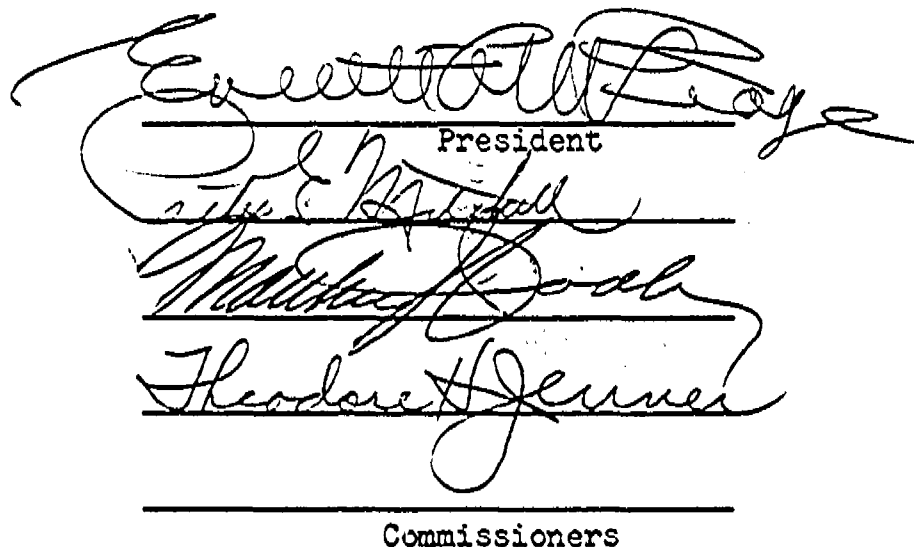 Everett C. McKeage
President
Peter E. Mitchell
Matthew J. Dooley
Theodore H. Jenner
Commissioners